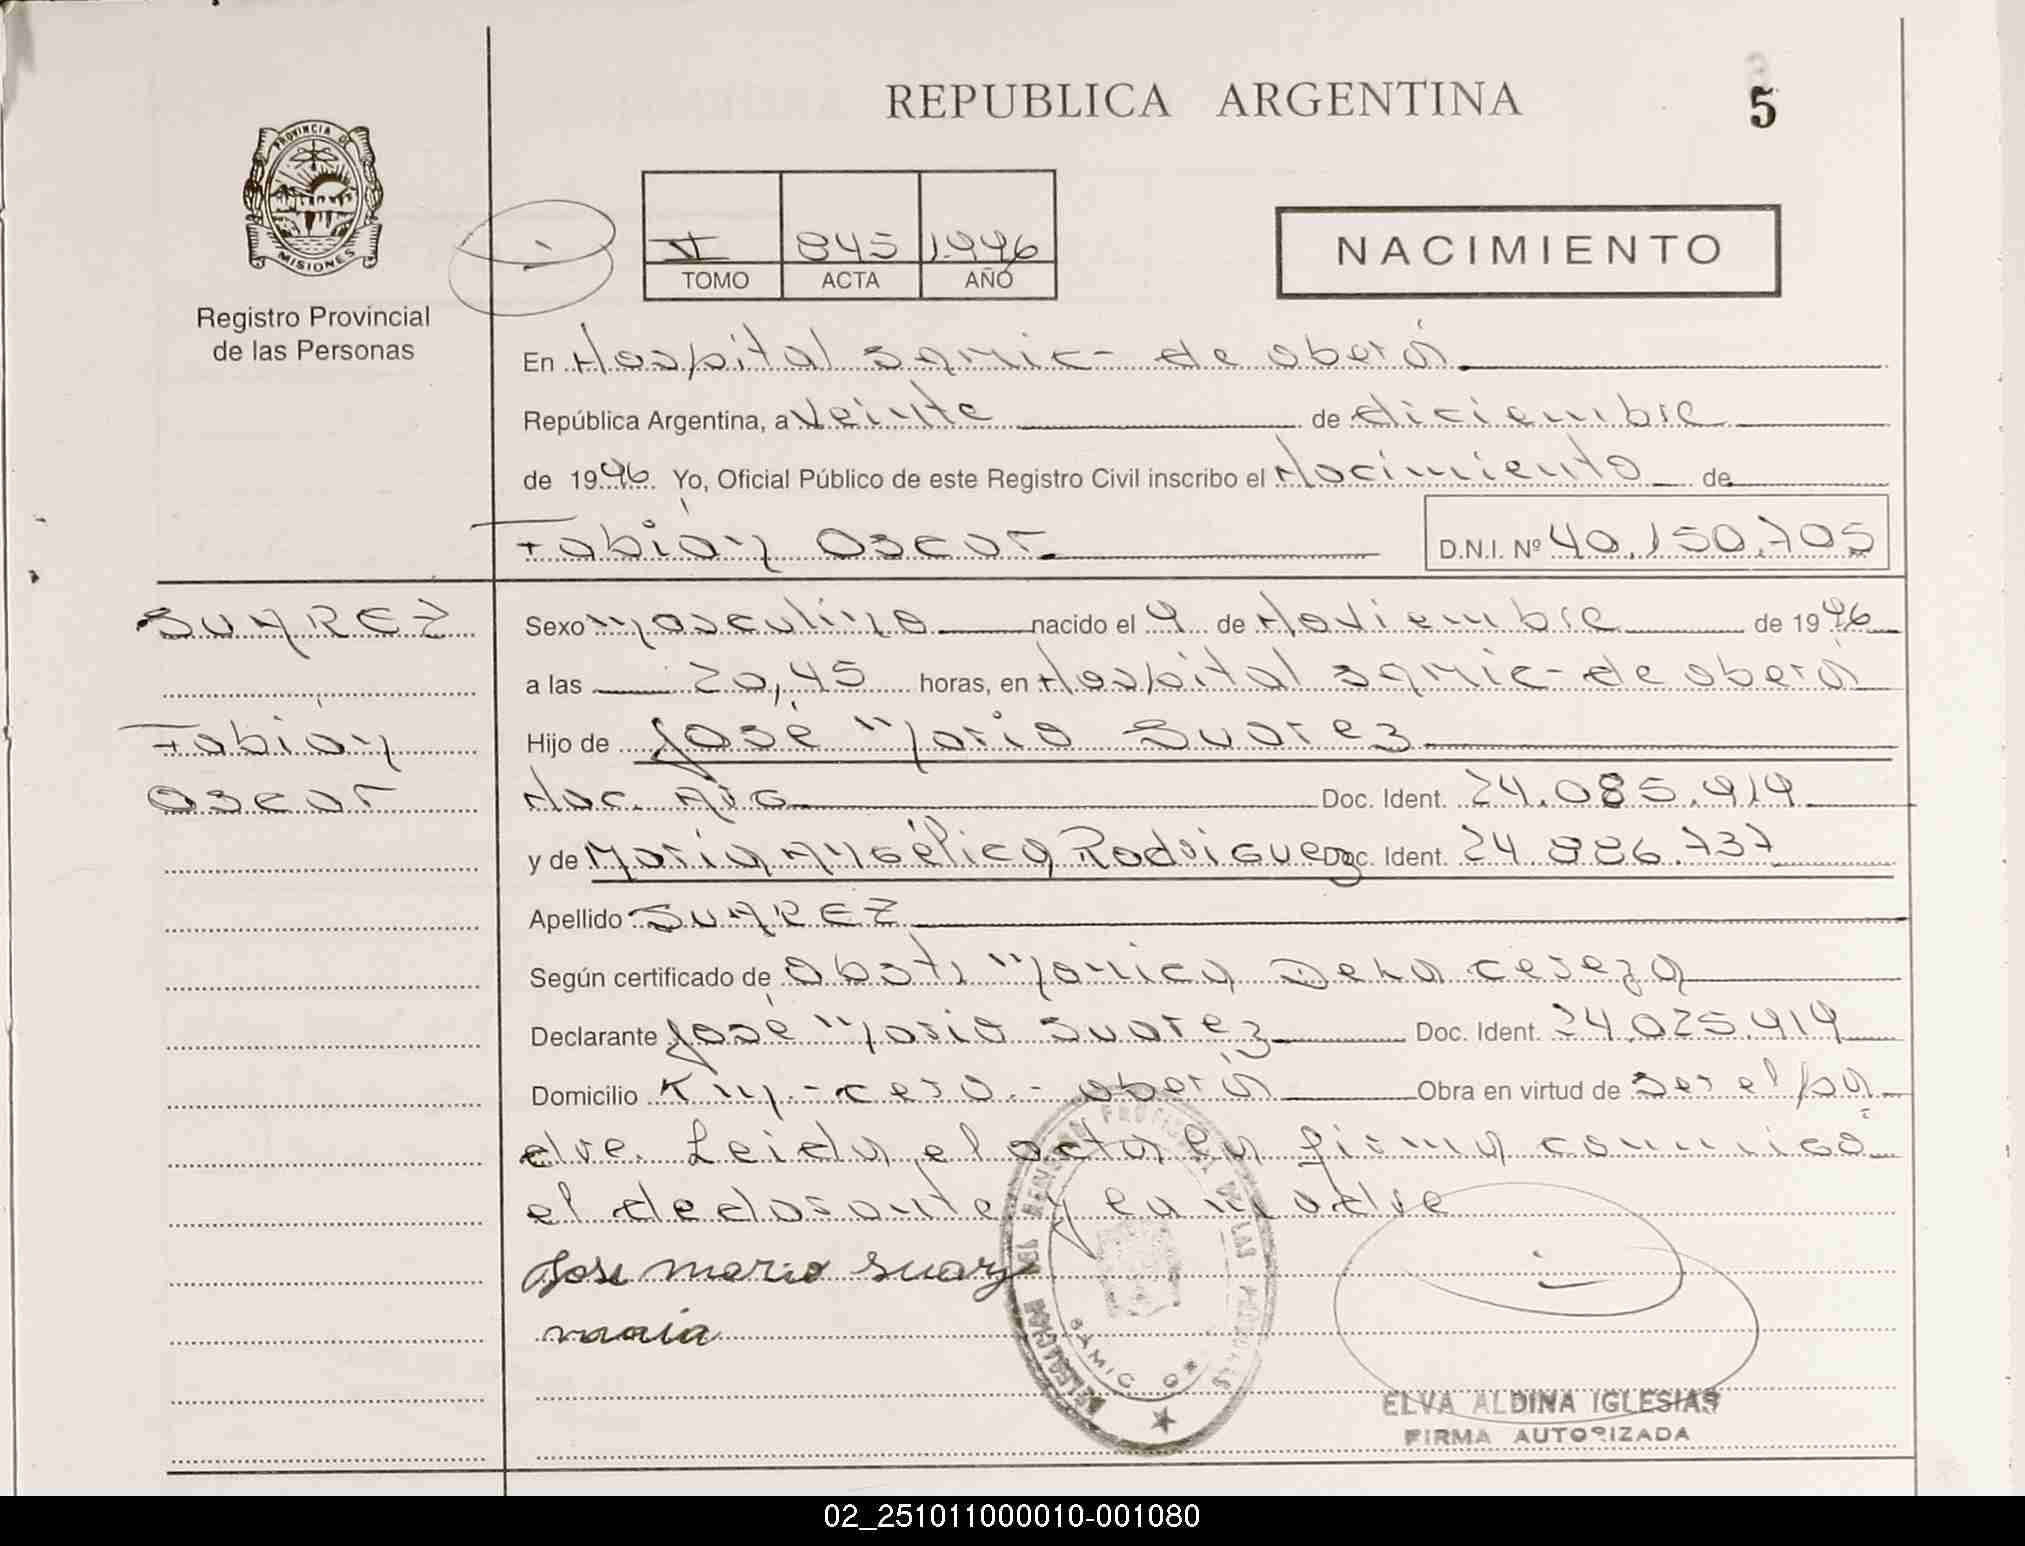 REPUBLICA ARGENTINA
5
PROVINCIA DE
MISIONES
Registro Provincial
de las Personas
VI 845 1.996
TOMO ACTA AÑO
NACIMIENTO
En Hospital Samic - de oberá
República Argentina, a Veinte de diciembre
de 1996. Yo, Oficial Público de este Registro Civil inscribo el Nacimiento de
Fabián Oscar D.N.I. Nº 40.150.705
SUAREZ
Fabián
Oscar
Sexo masculino nacido el 9 de Noviembre de 1996
a las 20,45 horas, en Hospital Samic - de oberá
Hijo de José Mario Suarez
Nac. Arg Doc. Ident. 24.085.919
y de María Angélica Rodriguez Doc. Ident. 24.886.737
Apellido SUAREZ
Según certificado de Obst. Monica Dela
Declarante José Mario Suarez Doc. Ident. 24.025.919
Domicilio Km. - cero. - oberá Obra en virtud de Ser el pa
dre. Leida el acta la firma conmigo
el declarante y la madre
Jose mario suarez
maria
DELEGACION DEL REGISTRO PROVINCIAL DE LAS PERSONAS
SAMIC
ELVA ALDINA IGLESIAS
FIRMA AUTORIZADA
02_251011000010-001080